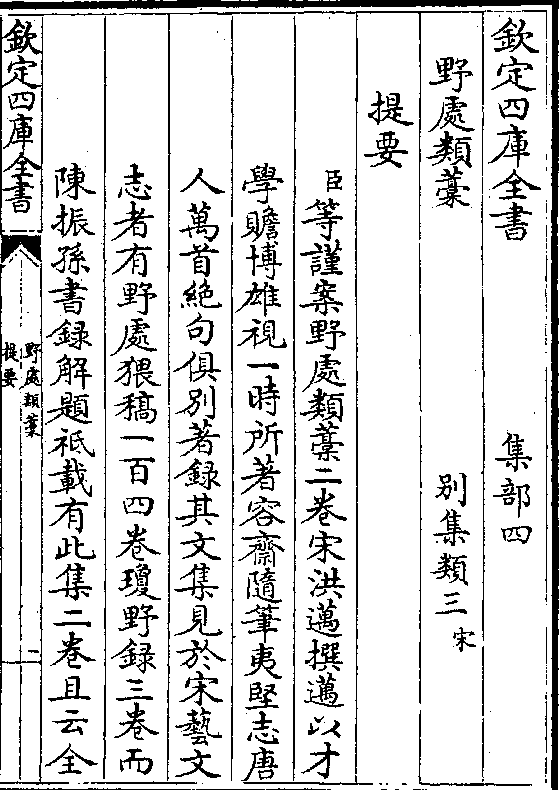 欽定四庫全書 集部四
野處類藁 別集類三 宋
提要
臣等謹案野處類藁二卷宋洪邁撰邁以才
學贍博雄視一時所著容齋隨筆夷堅志唐
人萬首絶句俱別著録其文集見於宋藝文
志者有野處猥稿一百四卷瓊野録三卷而
陳振孫書録解題祗載有此集二卷且云全
欽定四庫全書
野處類藁
提要
一